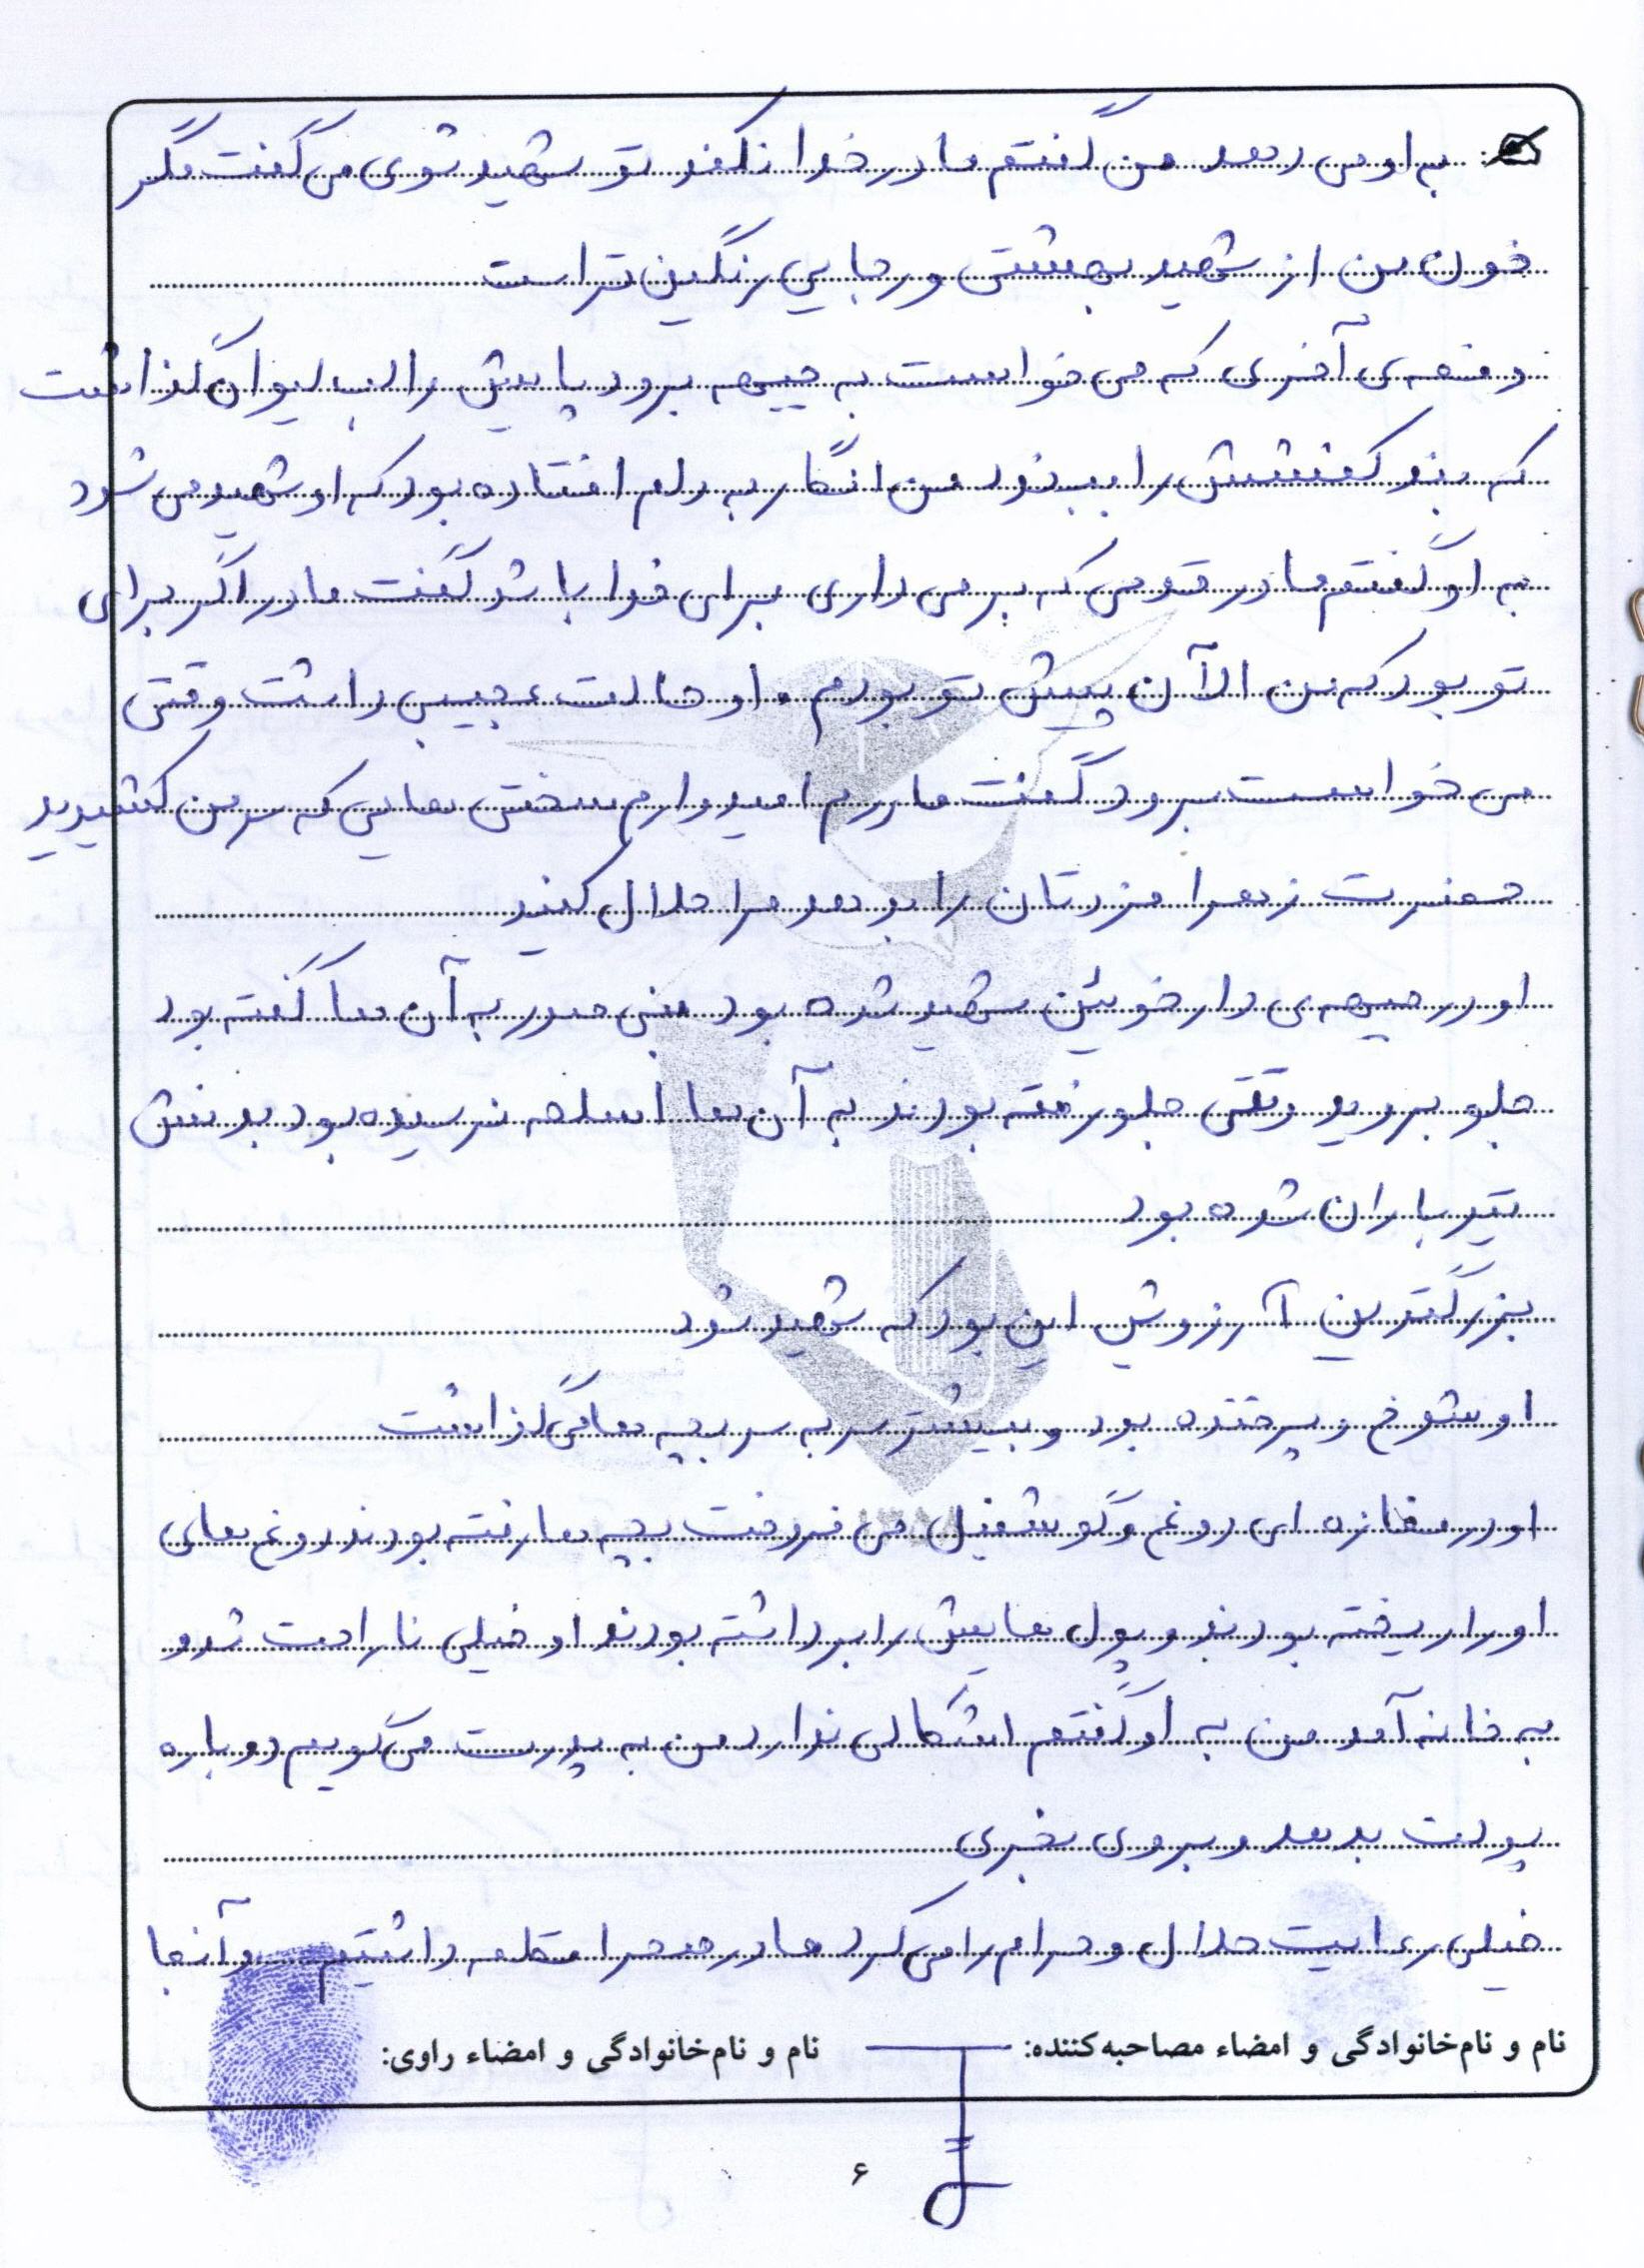 به او می دهد من گفتم مادر خدا نکند تو شهید شوی می گفت مگر
خون من از شهید بهشتی و رجایی رنگین تر است
دفعه ی آخری که می خواست به جبهه برود پایش را لب لیوان گذاشت
که بند کفشش را ببندد من انگار به دلم افتاده بود که او شهید می شود
به او گفتم مادر قدمی که بر می داری برای خدا باشد گفت مادر اگر برای
تو بود که من الآن پیش تو بودم . او حالت عجیبی داشت وقتی
می خواست برود گفت مادرم امیدوارم سختی هایی که سر من کشیدید
حضرت زهرا مزدتان را بدهد مرا حلال کنید
او در جبهه ی دارخوئین شهید شده بود بنی صدر به آن ها گفته بود
جلو بروید وقتی جلو رفته بودند به آن ها اسلحه نرسیده بود بدنش
تیر باران شده بود
بزرگترین آرزویش این بود که شهید شود
او شوخ و پرخنده بود و بیشتر سر به سر بچه ها می گذاشت
او در مغازه ای روغم و گوشفیل می فروخت بچه ها رفته بودند روغم های
او را ریخته بودند و پول هایش را برداشته بودند او خیلی ناراحت شد و
به خانه آمد من به او گفتم اشکالی ندارد من به پدرت می گویم دوباره
پولت بدهد و بروی بخری
خیلی رعایت حلال و حرام را می کرد ما در صحرا قلعه داشتیم و آنجا
نام و نام‌خانوادگی و امضاء مصاحبه‌کننده: نام و نام‌خانوادگی و امضاء راوی:
۶